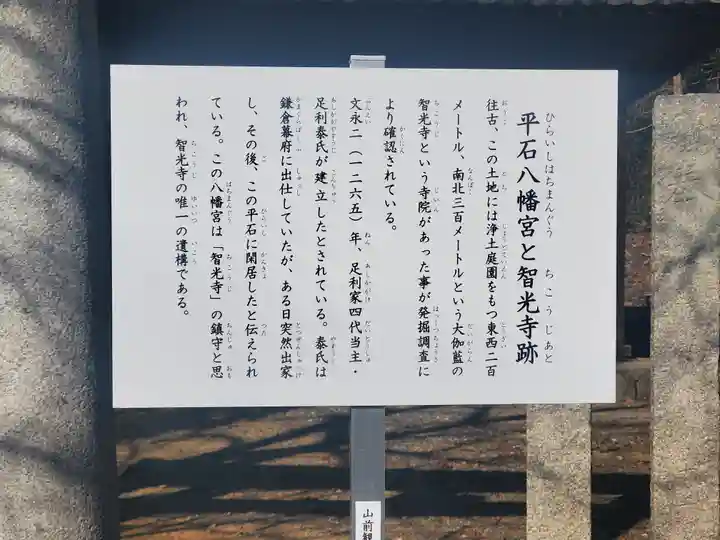 平石八幡宮と智光寺跡
往古、この土地には浄土庭園をもつ東西二百
メートル、南北三百メートルという大伽藍の
智光寺という寺院があった事が発掘調査に
より確認されている。
文永二(一二六五)年、足利家四代当主・
足利泰氏が建立したとされている。泰氏は
鎌倉幕府に出仕していたが、ある日突然出家
し、その後、この平石に閑居したと伝えられ
ている。この八幡宮は「智光寺」の鎮守と思
われ、智光寺の唯一の遺構である。
山前観